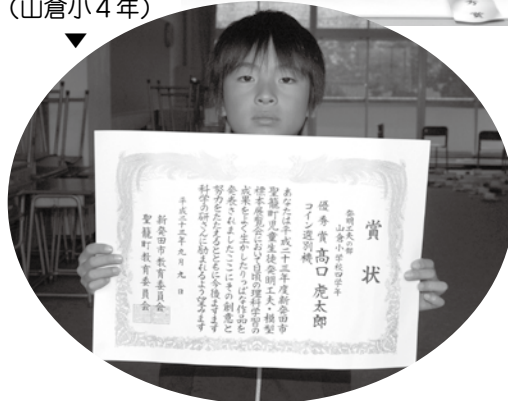 (山倉小4年)
▼
賞状
発明工夫の部
山倉小学校四学年
優秀賞 髙口 虎太郎
コイン選別機
あなたは平成二十三年度新発田市
聖籠町児童生徒発明工夫・模型
標本展覧会において日頃の理科学習の
成果をよく生かしたりっぱな作品を
発表されましたここにその創意と
努力をたたえるとともに今後ますます
科学の研さんに励まれるよう望みます
平成二十三年九月九日
新発田市教育委員会
聖籠町教育委員会